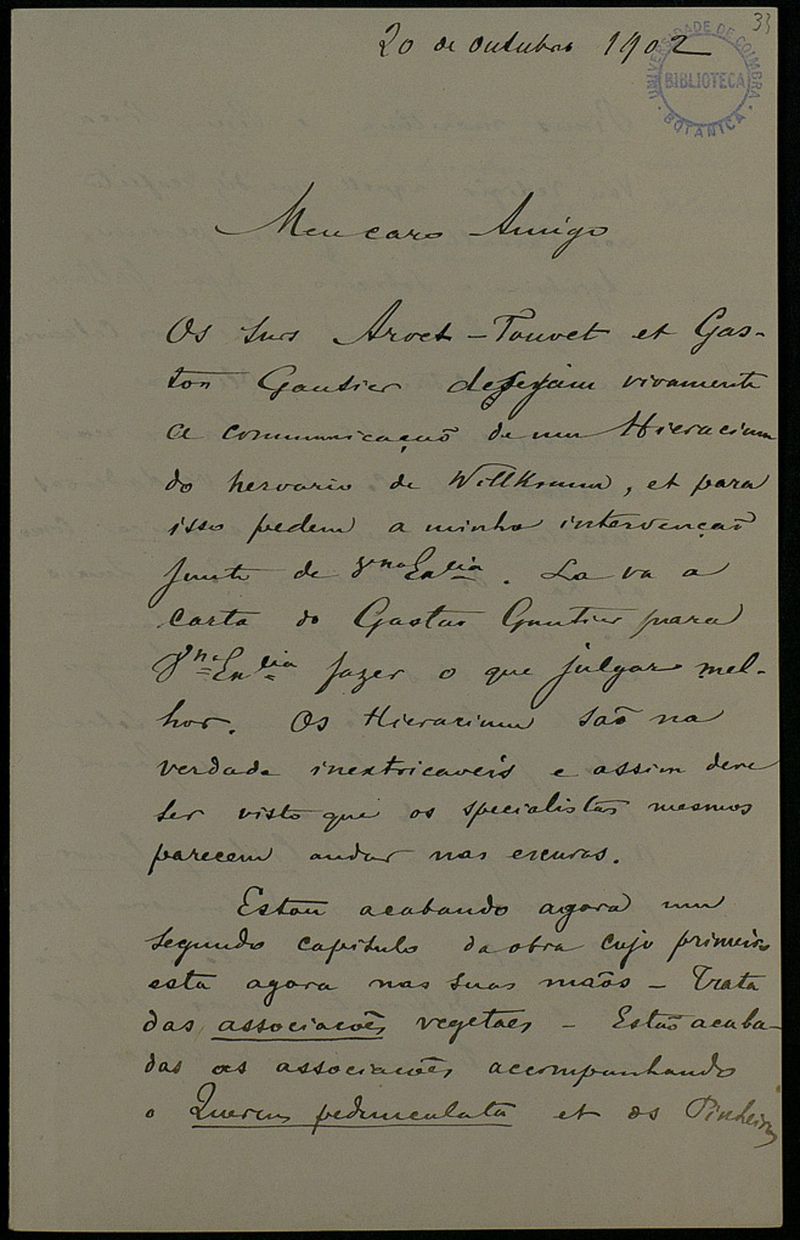 33
20 de Outubro 1902
UNIVERSIDADE DE COIMBRA
BIBLIOTECA
BOTANICA
Meu caro Amigo
Os snrs Arvet-Touvet et Gas-
ton Gautier desejam vivamente
a communicação de um Hieracium
do hervario de Willkomm, et para
isso pedem a minha intervenção
junto de Vna Exlia. La va a
carta do Gaston Gautier para
Vna Exlia fazer o que julgar mel-
hor. Os Hieracium são na
verdade inextricaveis e assim deve
ser visto que os specialistas mesmos
parecem andar nas escuras.
Estou acabando agora um
segundo capitulo da obra cujo primeiro
esta agora nas suas mãos - Trata
das associacoẽs vegetaes - Estão acaba-
das as associacoẽs accompanhando
o Quercus pedunculata et os Pinheiros